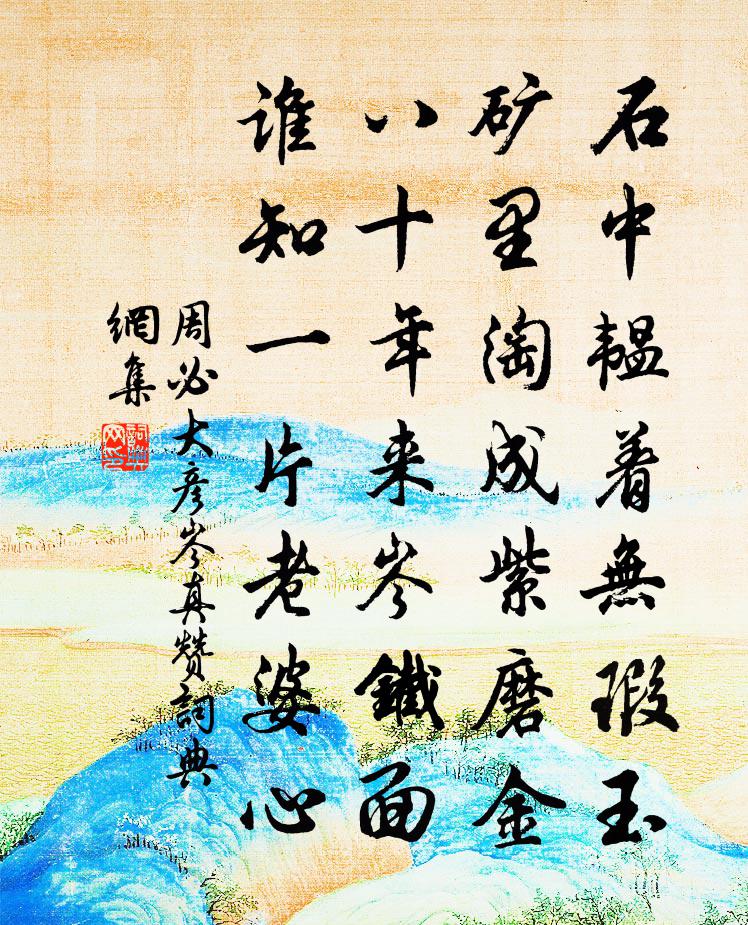 石中韞着無瑕玉
矿里淘成紫磨金
八十年来岑鐵面
谁知一片老婆心
周必大彦岑真赞詞典
網集